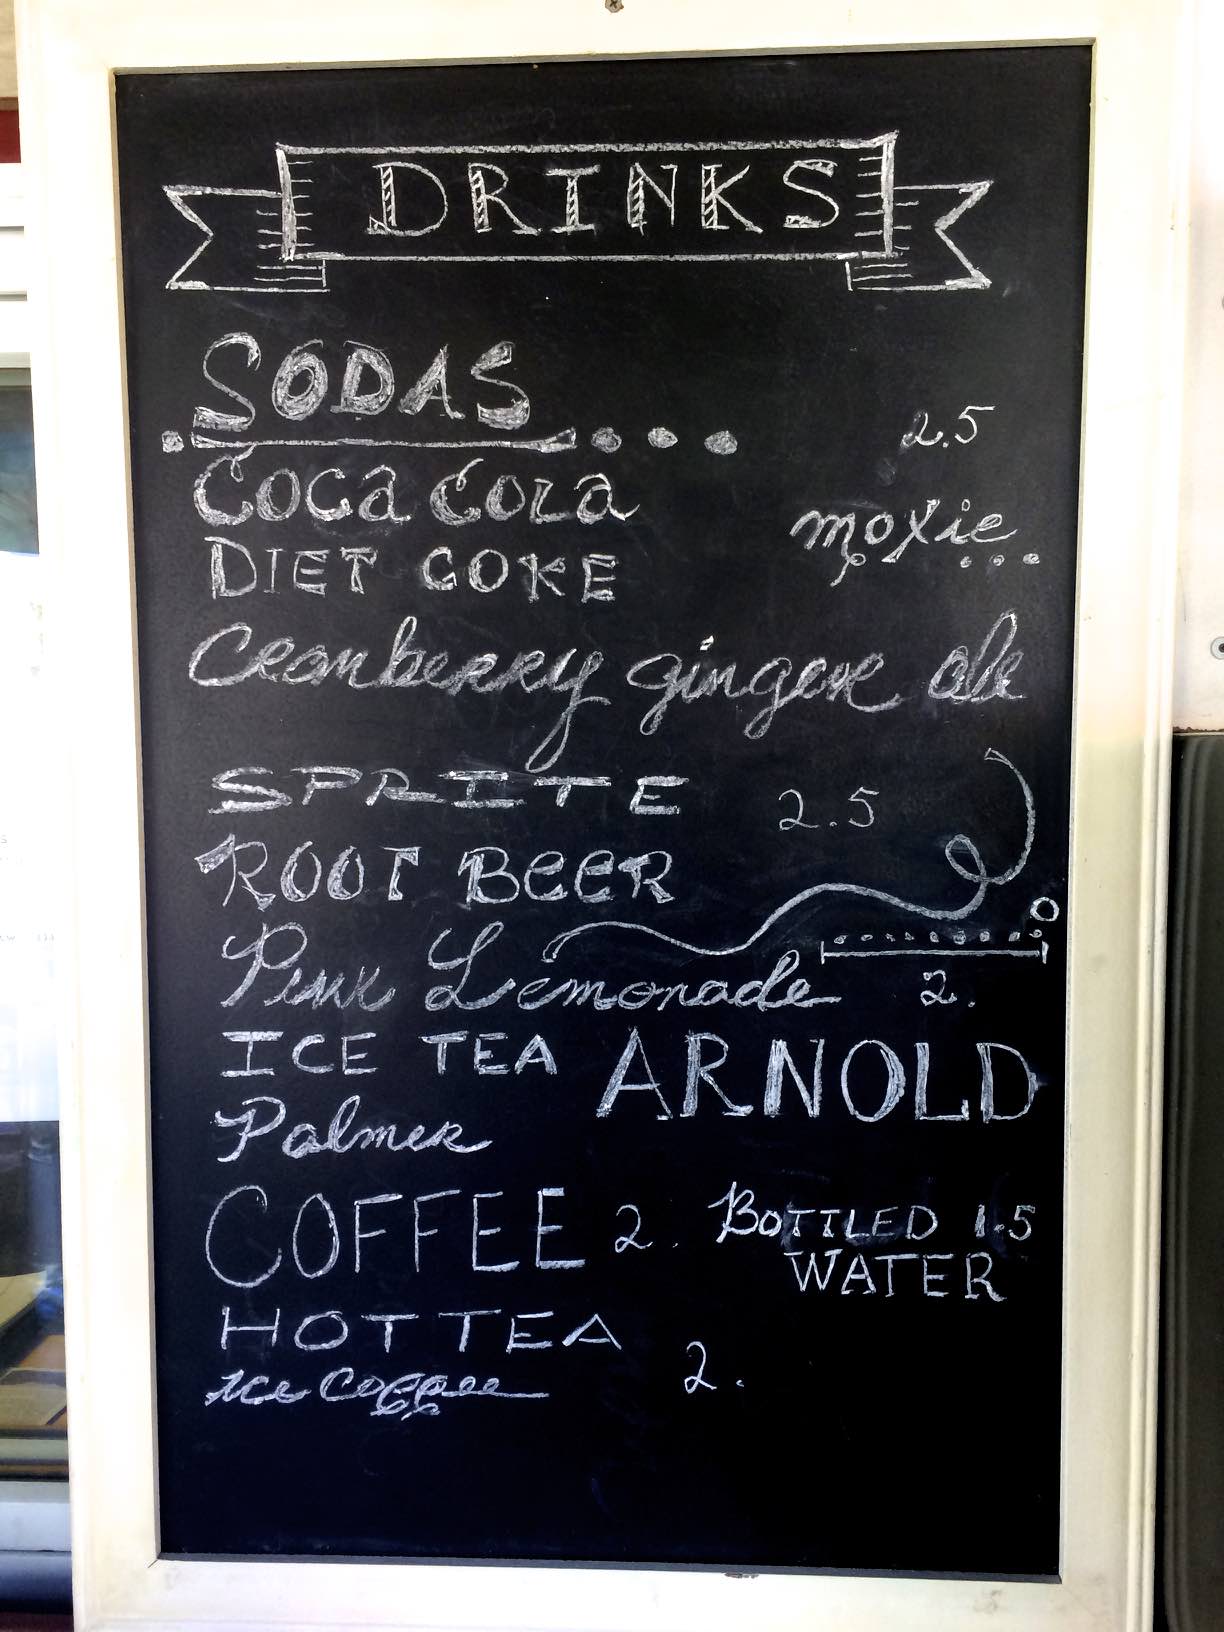 DRINKS
SODAS
2.5
Coca Cola
moxie
DIET COKE
Cranberry ginger ale
SPRITE 2.5
ROOT BEER
Pink Lemonade 2.
ICE TEA ARNOLD
Palmer
COFFEE 2. BOTTLED 1.5
WATER
HOT TEA
ice coffee 2.